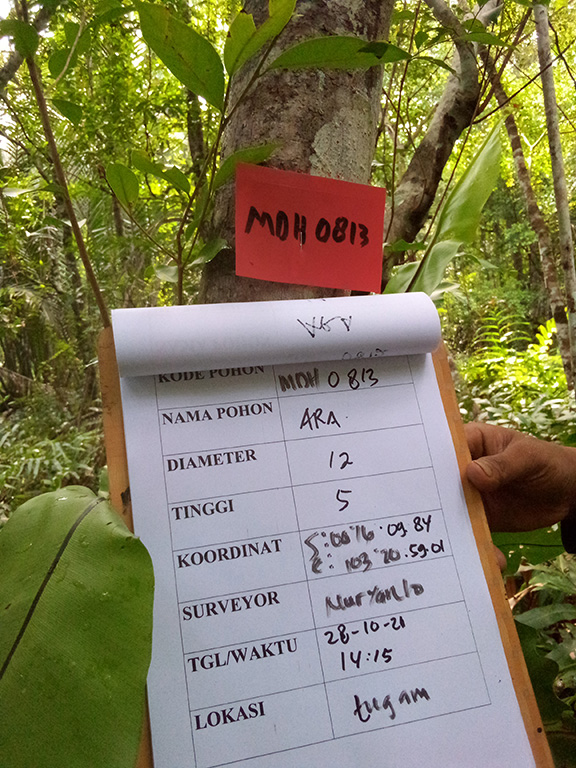 MDH 0813
KODE POHON MDH 0813
NAMA POHON ARA
DIAMETER 12
TINGGI 5
KOORDINAT S:00 16 09.84
E: 103 20.59.01
SURVEYOR
TGL/WAKTU 28-10-21
14:15
LOKASI tugam